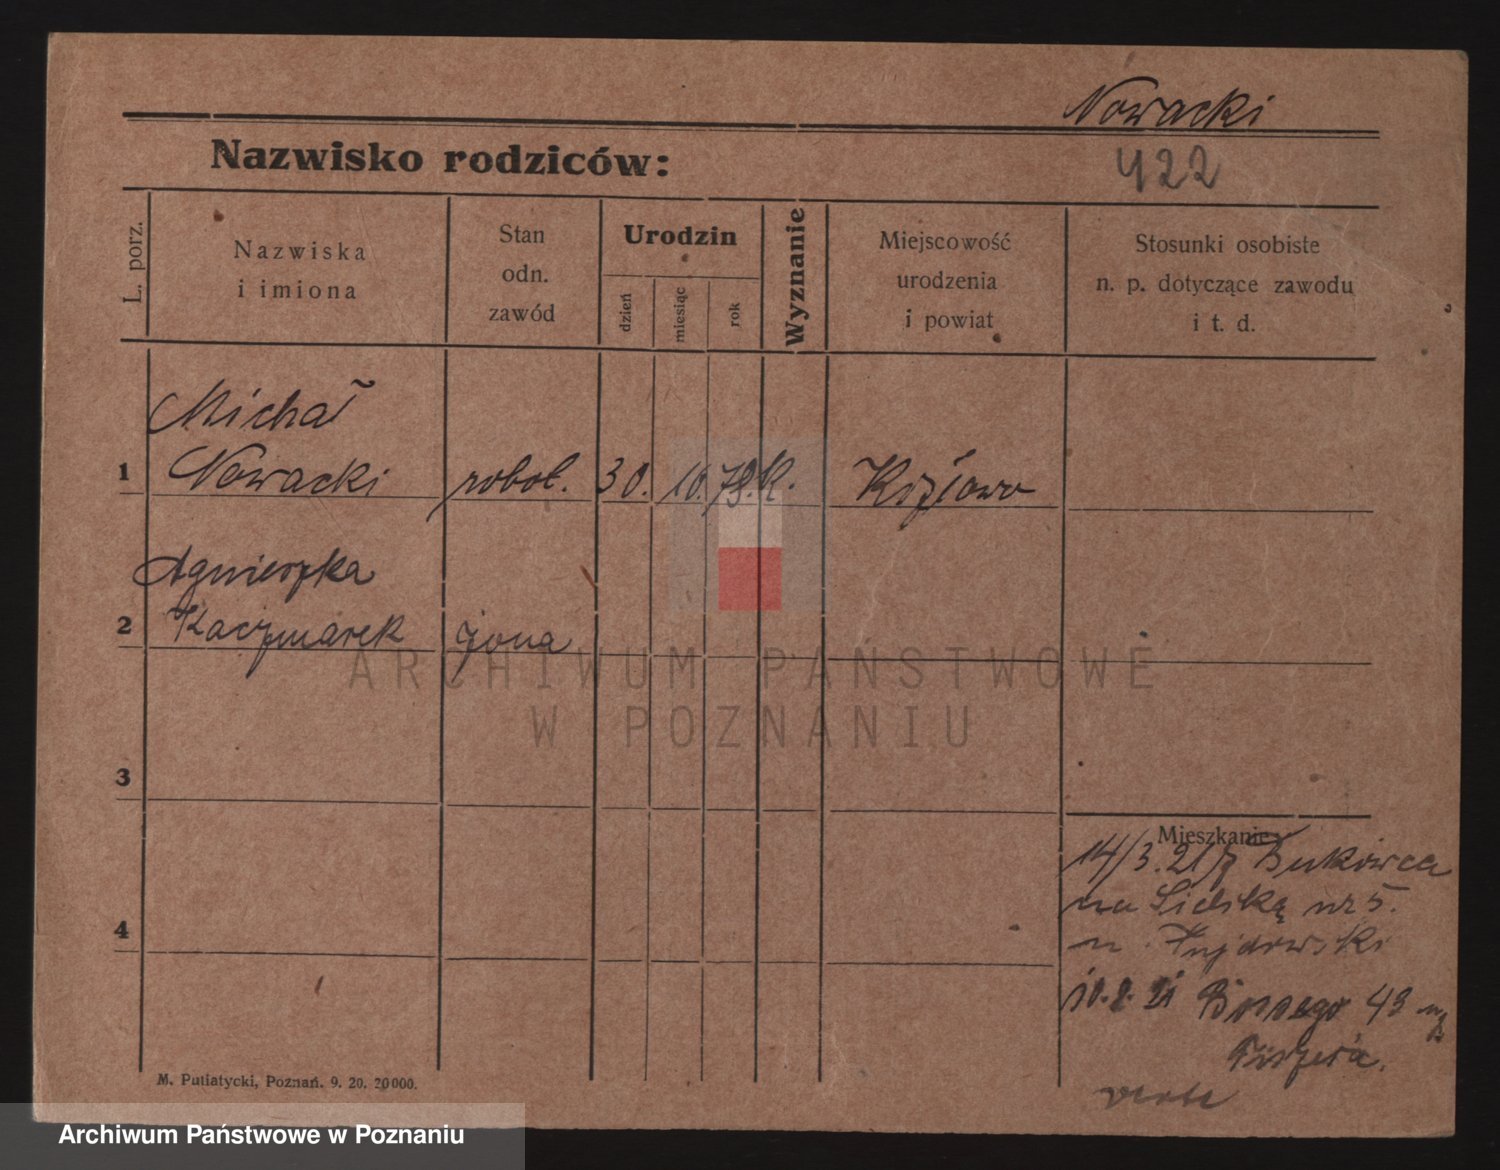 Nowacki
Nazwisko rodziców:
422
L. porz.
Nazwiska
i imiona
Stan
odn.
zawód
Urodzin
dzień
miesiąc
rok
Wyznanie
Miejscowość
urodzenia
i powiat
Stosunki osobiste
n. p. dotyczące zawodu
i t. d.
Michał
1 Nowacki robot. 30. 10. 79. K.
Agnieszka
2 Kaczmarek żona
3
Mieszkanie
14/3.21 z Bukówca
na nr 5.
4
43
M. Putiatycki, Poznań. 9. 20. 20000.
ARCHIWUM PAŃSTWOWE
W POZNANIU
Archiwum Państwowe w Poznaniu